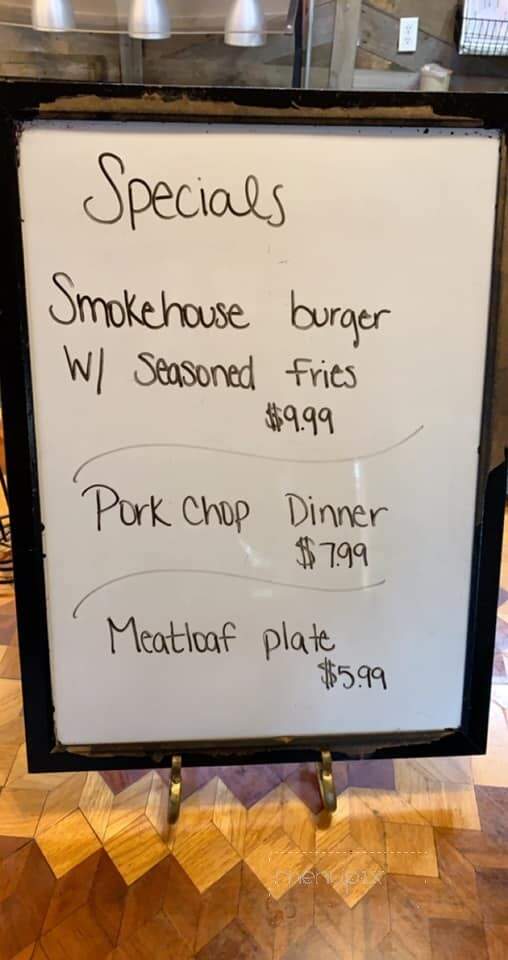 Specials
Smokehouse burger
W/ Seasoned fries
$9.99
Pork Chop Dinner
$7.99
Meatloaf plate
$5.99
menupix